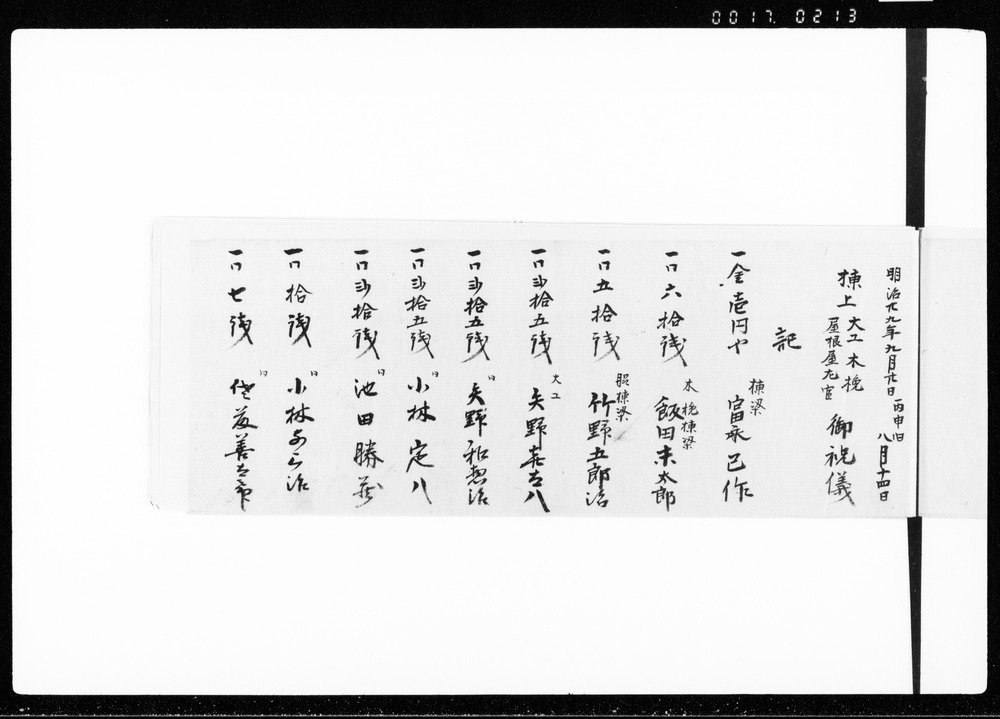 0017 0213
明治廿九年九月廿日 丙申旧八月十四日
棟上 大工 木挽 屋根屋左官 御祝儀
記
一金壱円や 棟梁 富永 己作
一〃六拾銭 木挽棟梁 飯田末太郎
一〃五拾銭 脇棟梁 竹野五郎治
一〃弐拾五銭 大工 矢野喜太八
一〃弐拾五銭 〃 矢野和惣治
一〃弐拾五銭 〃 小林定八
一〃弐拾銭 〃 池田勝蔵
一〃拾銭 〃 小林 治
一〃七銭 〃 善太市